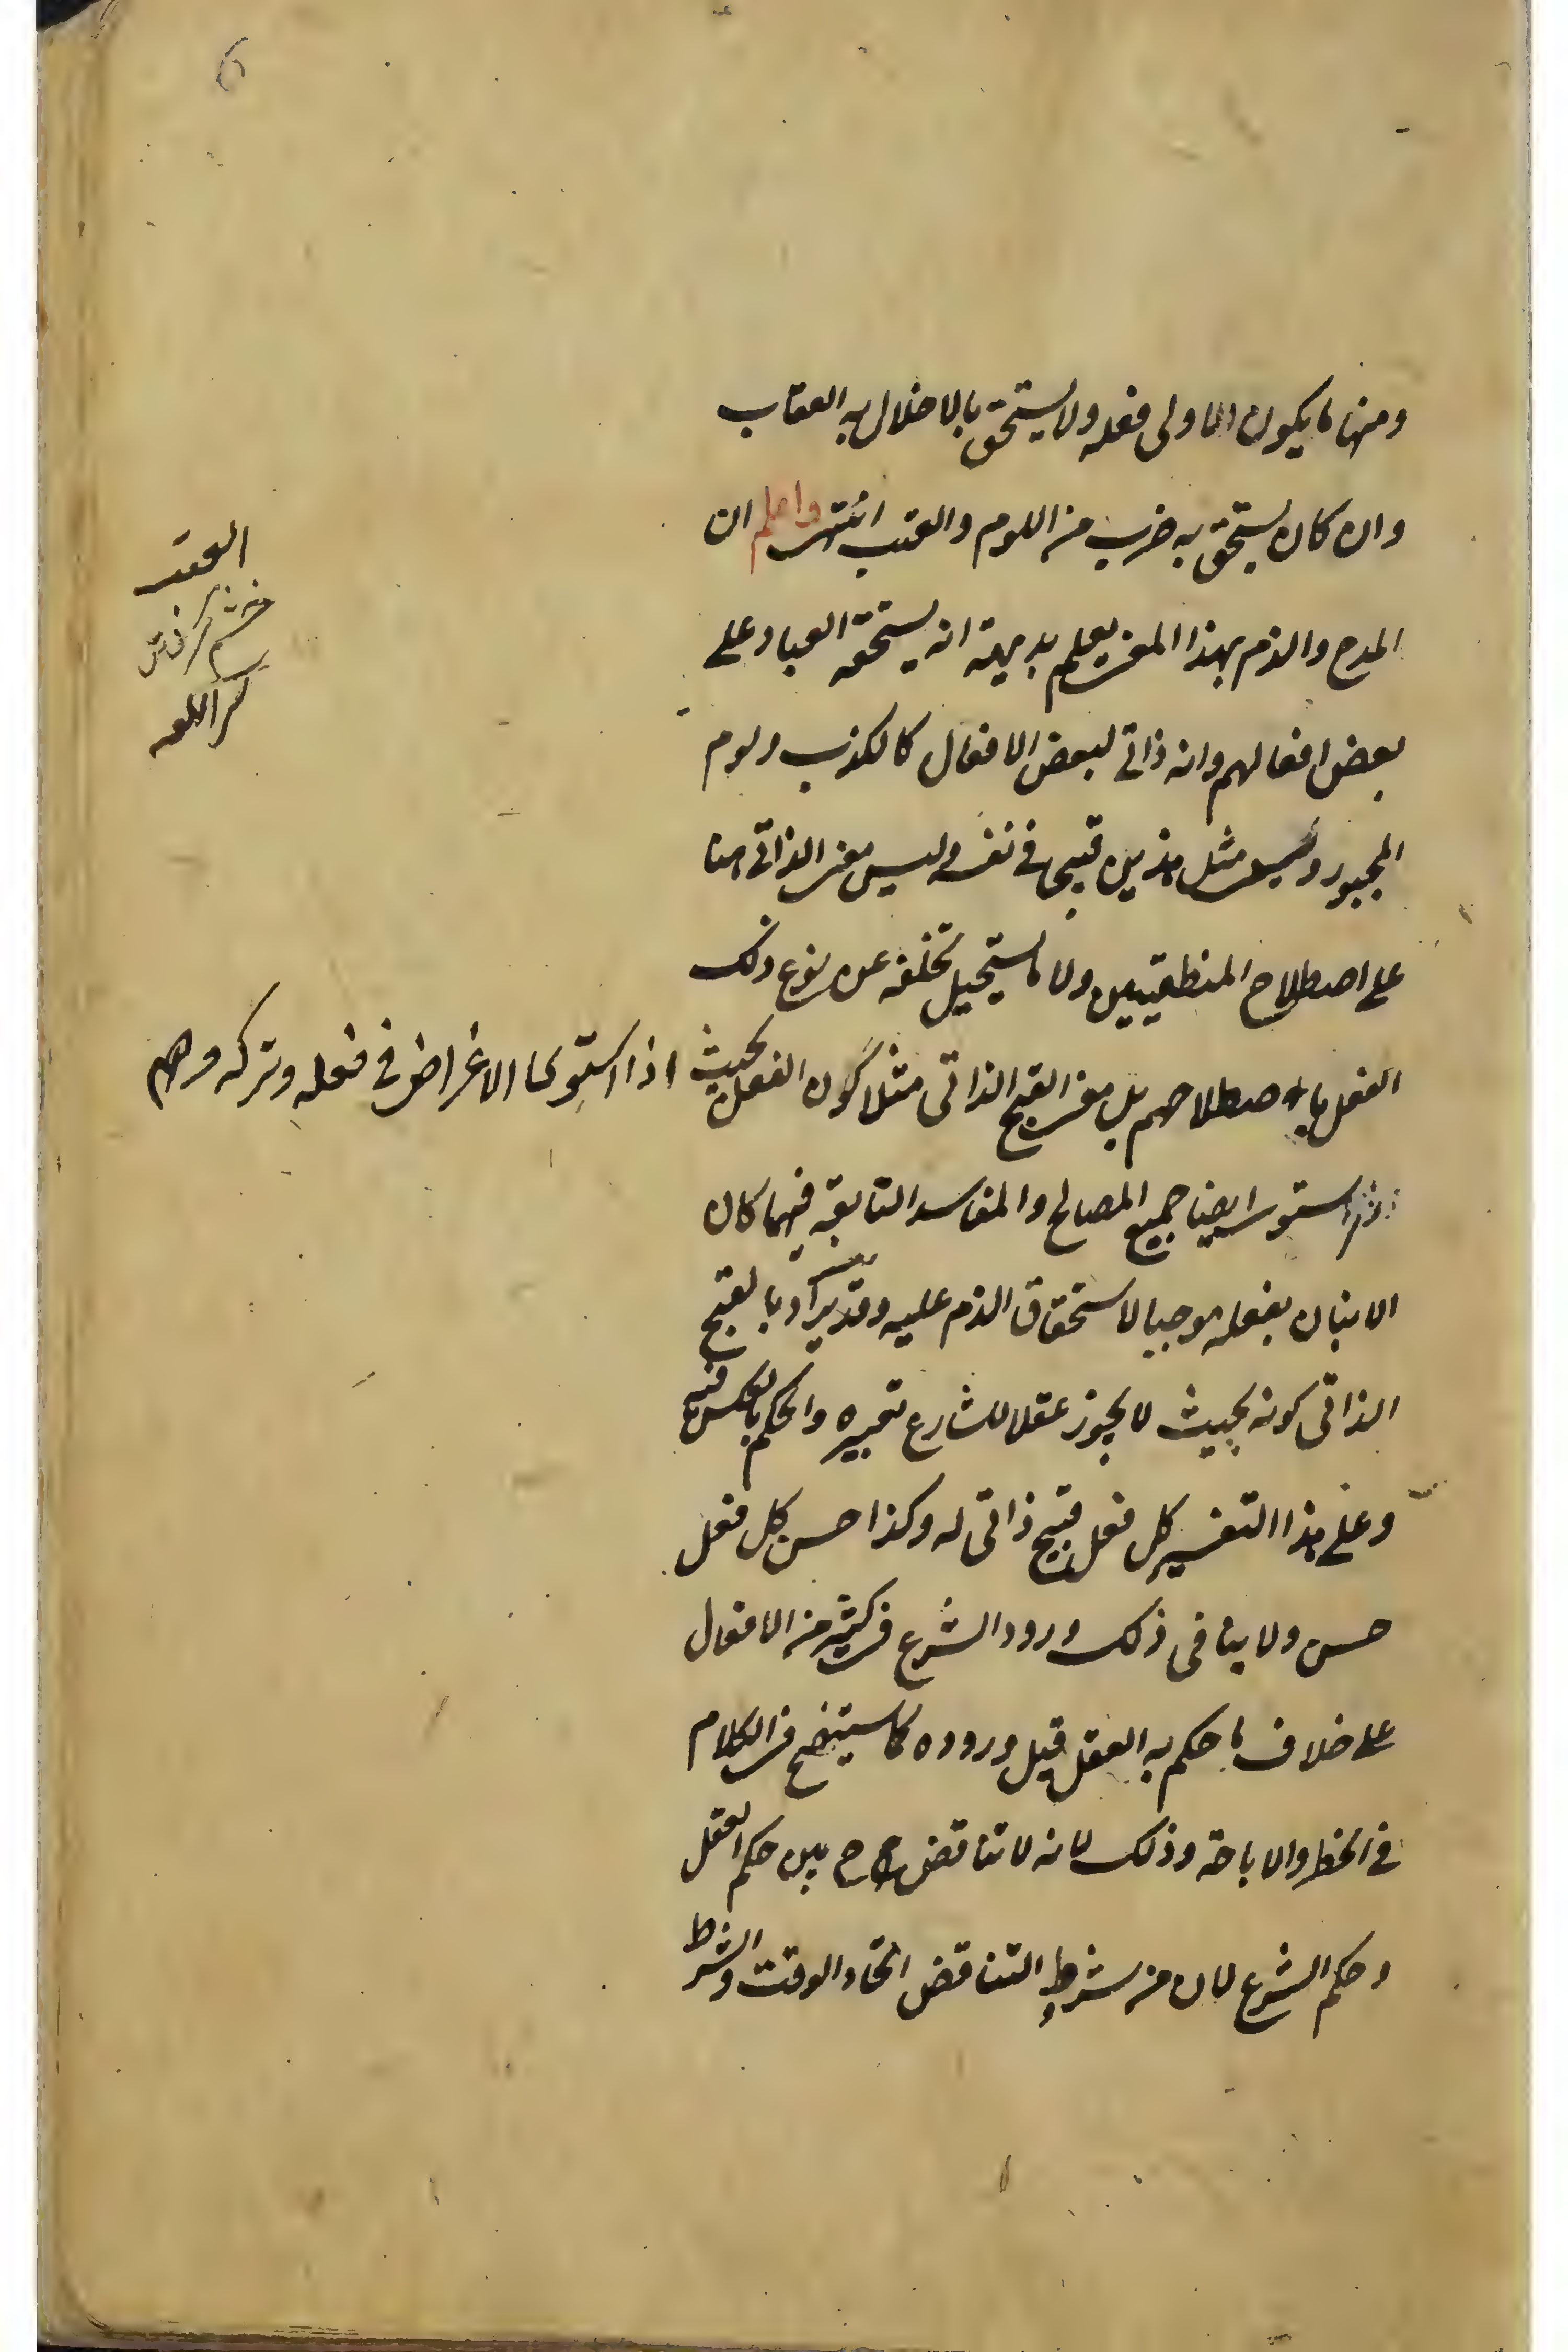 ومنها ما يكون الاولى فعله ولا يستحق بالاخلال به العقاب
وان كان يستحق به ضرب من اللوم والعتب انتهى واعلم ان
المدح والذم بهذا المعنى يعلم بديهة انه يستحقه العباد على
بعض افعالهم وانه ذاتى لبعض الافعال كالكذب ولوم
المجبور وليس مثل هذين قبيحا فى نفسه وليس معنى الذاتى هنا
على اصطلاح المنطقيين ولا ما يستحيل تخلفه عن نوع ذلك
الفعل باصطلاحهم بل معنى القبح الذاتى مثلا كون الفعل بحيث اذا استوى الاغراض فى فعله وتركه وهم
استوى ايضا جميع المصالح والمفاسد التابعة فيهما كان
الاتيان بفعله موجبا لاستحقاق الذم عليه وقد يراد بالقبح
الذاتى كونه بحيث لا يجوز عقلا للشارع تغييره والحكم بالعكس فيه
وعلى هذا التفسير كل فعل قبيح ذاتى له وكذا حسن كل فعل
حسن ولا ينافى ذلك ورود الشرع فى كثير من الافعال
على خلاف ما حكم به العقل قبل وروده كما سيتضح فى الكلام
فى الحظر والاباحة وذلك لانه لا تناقض ح بين حكم العقل
وحكم الشرع لان من شرط التناقض اتحاد الوقت والشرط
العتب
خشم گرفتن
كنز اللغه